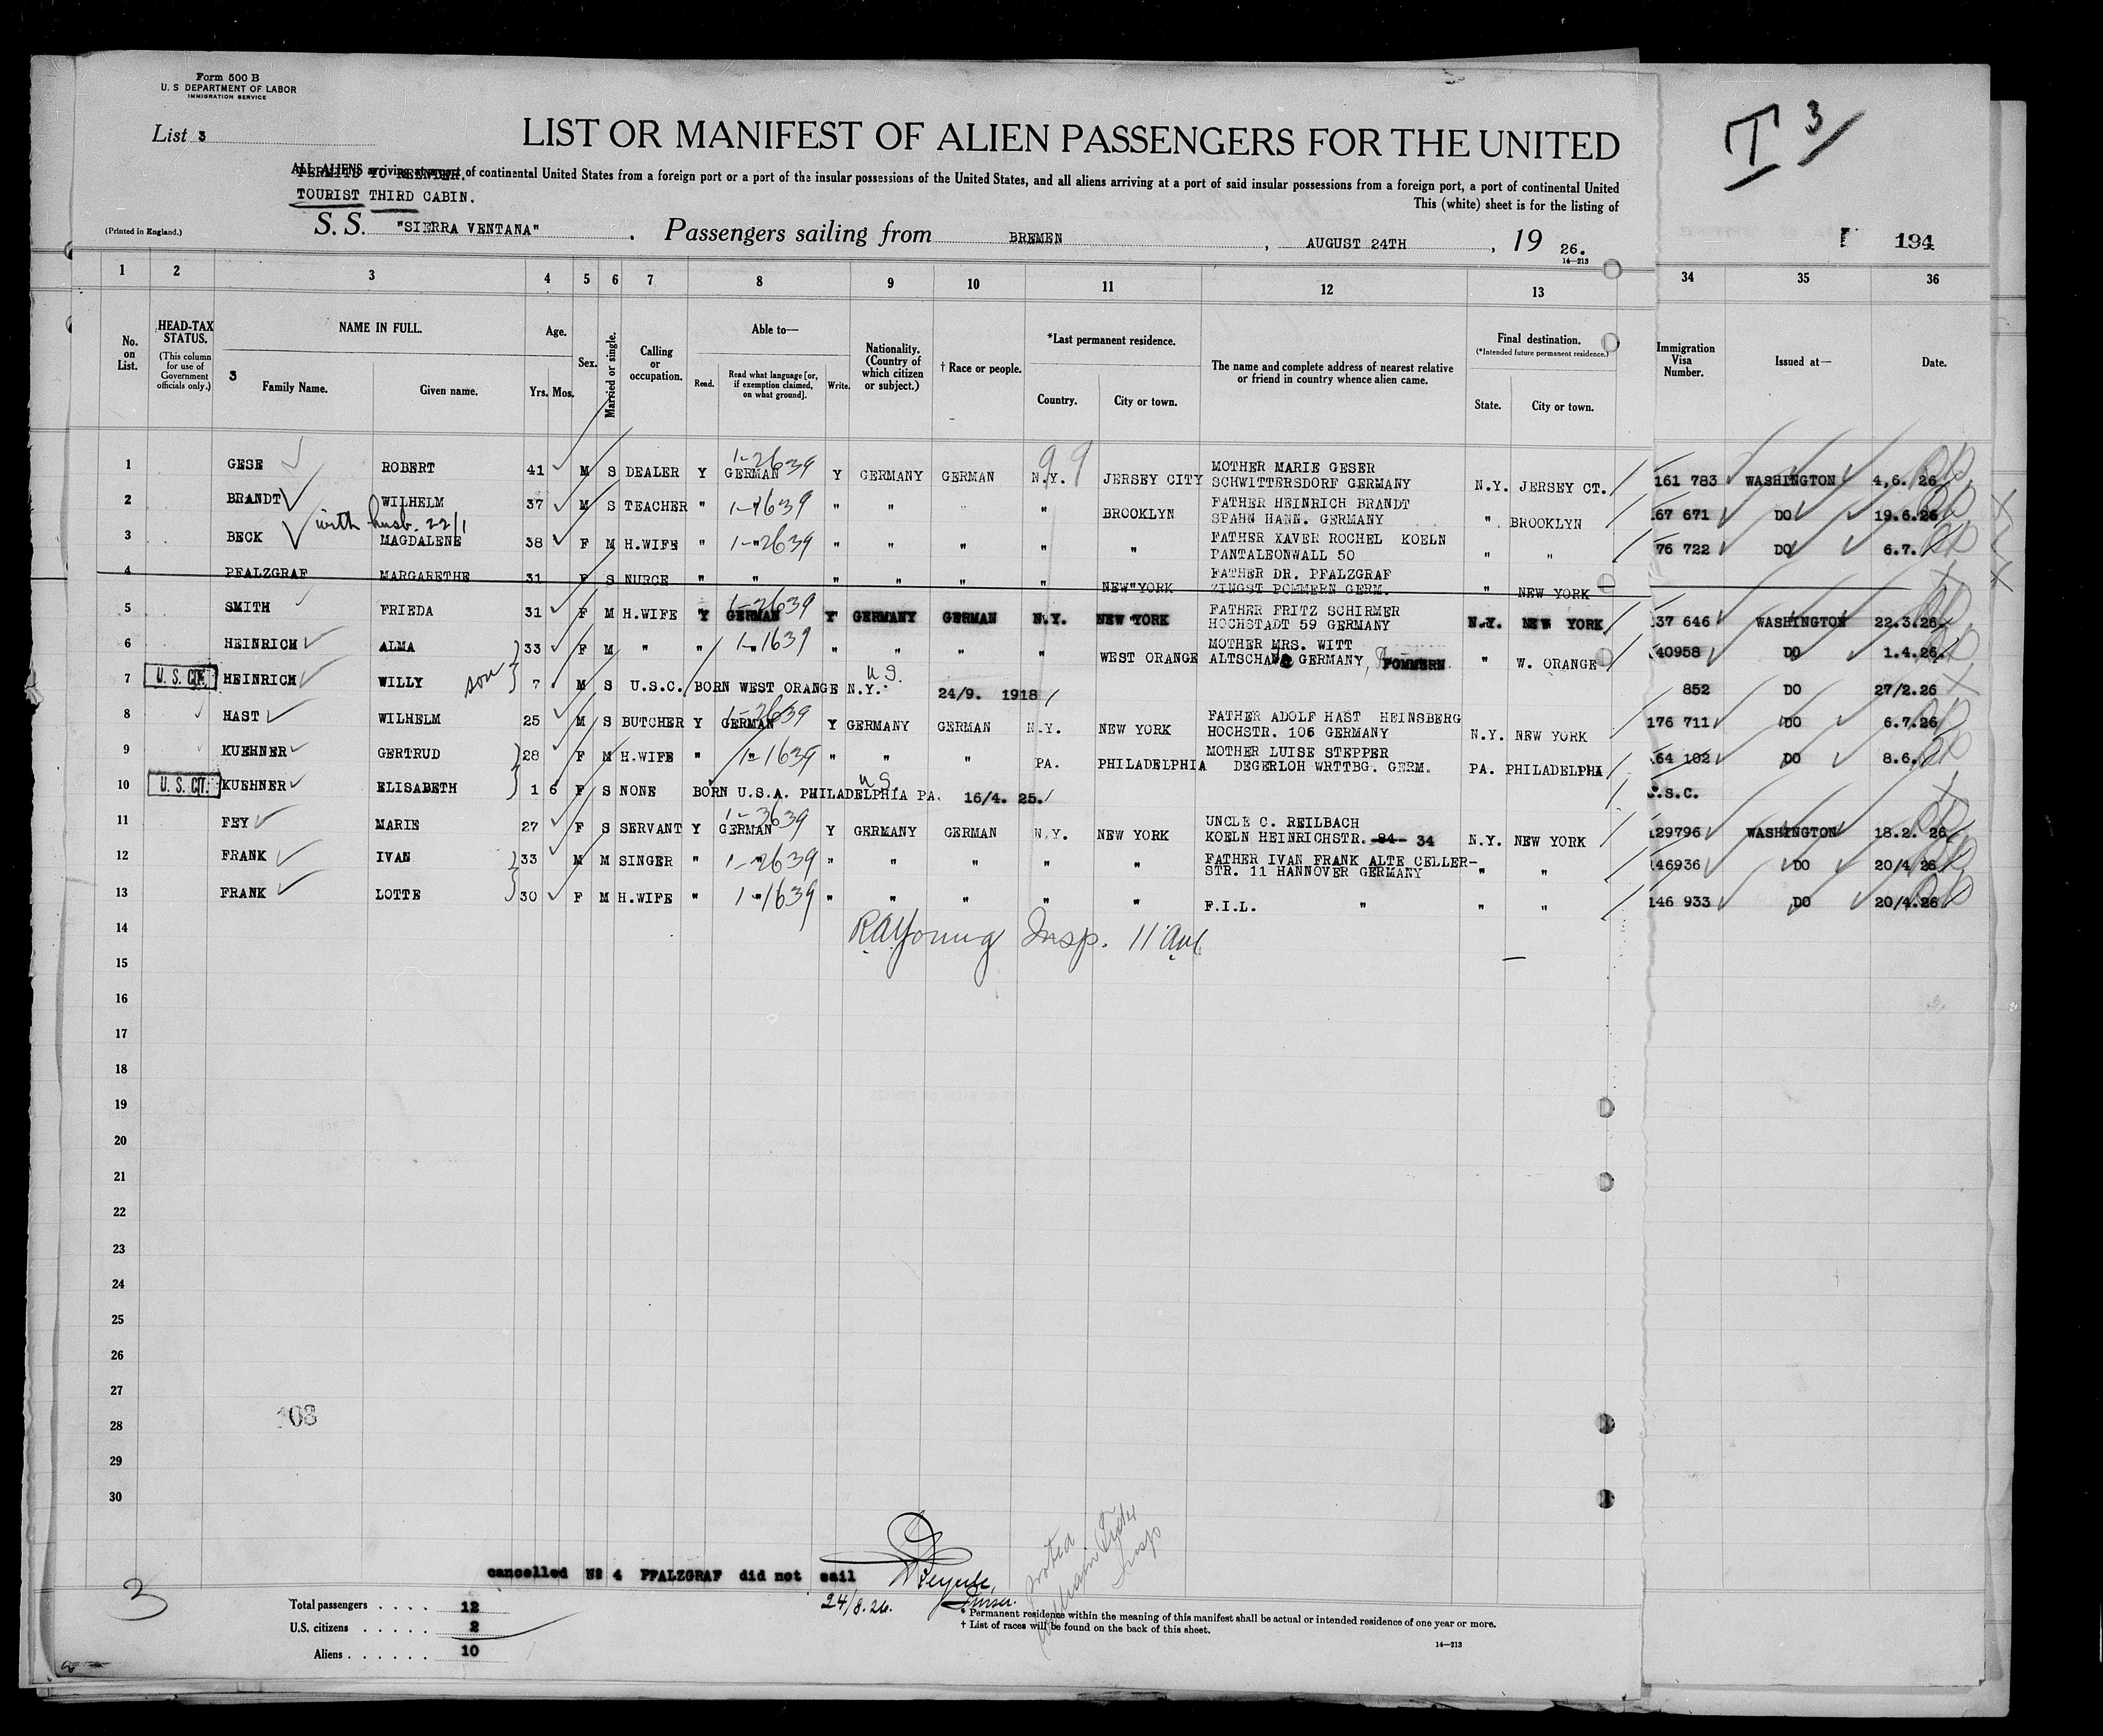 Form 500 B
U. S DEPARTMENT OF LABOR
IMMIGRATION SERVICE
List 3
LIST OR MANIFEST OF ALIEN PASSENGERS FOR THE UNITED
T 3
ALL ALIENS arriving at a port of continental United States from a foreign port or a port of the insular possessions of the United States, and all aliens arriving at a port of said insular possessions from a foreign port, a port of continental United
PERMITS TO REENTER.
TOURIST THIRD CABIN.
This (white) sheet is for the listing of
(Printed in England.)
S. S. "SIERRA VENTANA" . Passengers sailing from BREMEN , AUGUST 24TH , 19 26.
14—213
194
1 2 3 4 5 6 7 8 9 10 11 12 13 34 35 36
No. on List.
HEAD-TAX STATUS.
(This column for use of Government officials only.)
NAME IN FULL.
3
Family Name. Given name.
Age.
Yrs. Mos.
Sex.
Married or single.
Calling or occupation.
Able to—
Read. Read what language [or, if exemption claimed, on what ground]. Write.
Nationality. (Country of which citizen or subject.)
† Race or people.
*Last permanent residence.
Country. City or town.
The name and complete address of nearest relative or friend in country whence alien came.
Final destination.
(*Intended future permanent residence.)
State. City or town.
Immigration Visa Number.
Issued at—
Date.
1 GESE ROBERT 41 M S DEALER Y GERMAN 1-2639 Y GERMANY GERMAN N.Y. 99 JERSEY CITY MOTHER MARIE GESER SCHWITTERSDORF GERMANY N.Y. JERSEY CT. 161 783 WASHINGTON 4,6. 26
2 BRANDT WILHELM 37 M S TEACHER " 1-1639 " " " " BROOKLYN FATHER HEINRICH BRANDT SPAHN HANN. GERMANY " BROOKLYN 67 671 DO 19.6.26
with husb. 22/1
3 BECK MAGDALENE 38 M F M H.WIFE " 1-2639 " " " " " FATHER XAVER ROCHEL KOELN PANTALEONWALL 50 " " 76 722 DO 6.7.
4 PFALZGRAF MARGARETHE 31 F S NURCE " " " " " " NEW YORK FATHER DR. PFALZGRAF ZINGST POMMERN GERM. " NEW YORK
5 SMITH FRIEDA 31 F M H.WIFE Y GERMAN 1-2639 Y GERMANY GERMAN N.Y. NEW YORK FATHER FRITZ SCHIRMER HOCHSTADT 59 GERMANY N.Y. NEW YORK 37 646 WASHINGTON 22.3.26.
6 HEINRICH ALMA 33 F M " " 1-1639 " " " " WEST ORANGE MOTHER MRS. WITT ALTSCHA GERMANY, POMMERN " W. ORANGE 40958 DO 1.4.26.
7 U. S. CIT. HEINRICH WILLY son 7 M S U.S.C. BORN WEST ORANGE N.Y. U.S. 24/9. 1918 852 DO 27/2.26
8 HAST WILHELM 25 M S BUTCHER Y GERMAN 1-2639 Y GERMANY GERMAN N.Y. NEW YORK FATHER ADOLF HAST HEINSBERG HOCHSTR. 106 GERMANY N.Y. NEW YORK 176 711 DO 6.7.26
9 KUEHNER GERTRUD 28 F M H.WIFE " 1-1639 " " " PA. PHILADELPHIA MOTHER LUISE STEPPER DEGERLOH WRTTBG. GERM. PA. PHILADELPHA 64 102 DO 8.6.
10 U. S. CIT. KUEHNER ELISABETH 1 6 F S NONE BORN U.S.A. PHILADELPHIA PA. U.S. 16/4. 25. .S.C.
11 FEY MARIE 27 F S SERVANT Y GERMAN 1-3639 Y GERMANY GERMAN N.Y. NEW YORK UNCLE C. REILBACH KOELN HEINRICHSTR. 84 34 N.Y. NEW YORK 129796 WASHINGTON 18.2. 26
12 FRANK IVAN 33 M M SINGER " 1-2639 " " " " " FATHER IVAN FRANK ALTE CELLER- STR. 11 HANNOVER GERMANY " " 146936 DO 20/4 26
13 FRANK LOTTE 30 F M H.WIFE " 1-1639 " " " " " F.I.L. " " " 146 933 DO 20/4.26
14 RAYoung Insp.
15
16
17
18
19
20
21
22
23
24
25
26
27
28
108
29
30
cancelled No 4 PFALZGRAF did not sail
24/8.26. Purser.
3
Total passengers . . . . 12
U.S. citizens . . . . . 2
Aliens . . . . . . 10
* Permanent residence within the meaning of this manifest shall be actual or intended residence of one year or more.
† List of races will be found on the back of this sheet.
14—213